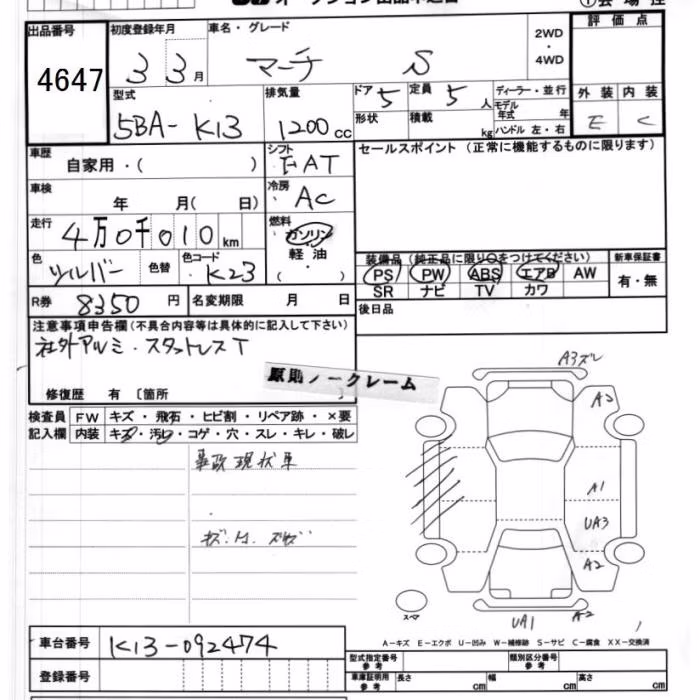 ①会場控
出品番号 初度登録年月 車名・グレード 2WD・4WD 評価点
4647 33月 マーチ S
型式 排気量 ドア 5 定員 5人 ディーラー・並行 外装 内装
5BA- K13 1200cc 形状 積載 kg モデル年式 年 ハンドル 左・右 E C
車歴 自家用・( ) シフト FAT セールスポイント (正常に機能するものに限ります)
車検 年 月( 日) 冷房 AC
走行 4万0千010km 燃料 ガソリン
軽油
( ・ )
色 シルバー 色替 色コード K23
装備品 (純正品に限り○をつけてください) 新車保証書
PS PW ABS エアB AW 有・無
SR ナビ TV カワ
R券 8350円 名変期限 月 日 後日品
注意事項申告欄(不具合内容等は具体的に記入して下さい)
社外アルミ・スタットレスT
原則ノークレーム
修復歴 有 〔箇所 〕
検査員 FW キズ・飛石・ヒビ割・リペア跡・×要
記入欄 内装 キズ・汚れ・コゲ・穴・スレ・キレ・破レ
事故現状車
A3ズレ
A2
A1
UA3
A2
UA1 A-2
スペア
A-キズ E-エクボ U-凹み W-補修跡 S-サビ C-腐食 XX-交換済
車台番号 K13-092474
登録番号
型式指定番号 参考 類別区分番号 参考
車庫証明用 参考 長さ cm 幅 cm 高さ cm